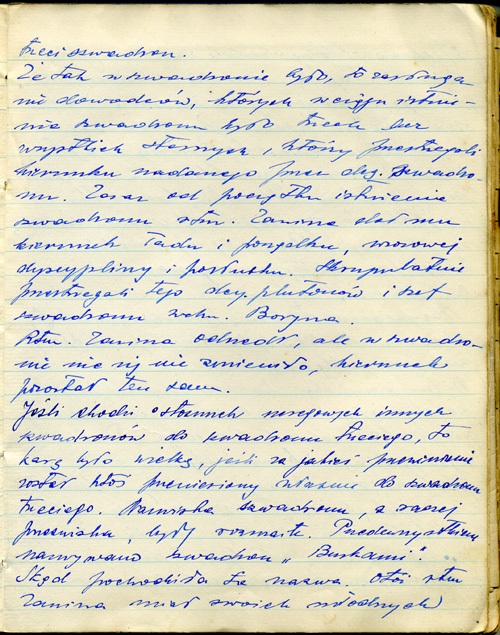 trzeci szwadron.
Że tak w szwadronie było, to zasługa
nie dowódców, których w ciągu istnie-
nia szwadronu było trzech lecz
wszystkich starszych, którzy przestrzegali
kierunku nadanego przez dcę. szwadro-
nu. Zaraz od początku istnienia
szwadronu rtm. Zanina dał mu
kierunek ładu i porządku, wzorowej
dyscypliny i posłuchu. Skrupulatnie
przestrzegali tego dcy. plutonów i szef
szwadronu wchm. Boryna.
Rtm. Zanina odszedł, ale w szwadro-
nie nic się nie zmieniło, kierunek
pozostał ten sam.
Jeśli chodzi o stosunek szeregowych innych
szwadronów do szwadronu trzeciego, to
karą było wielką, jeśli za jakieś przewinienie
został ktoś przeniesiony właśnie do szwadronu
trzeciego. Nazwiska szwadronu, a raczej
przezwiska, były rozmaite. Przedewszystkiem
nazywano szwadron „Burkami".
Skąd pochodziła ta nazwa. Otóż rtm
Zanina miał swoich młodych